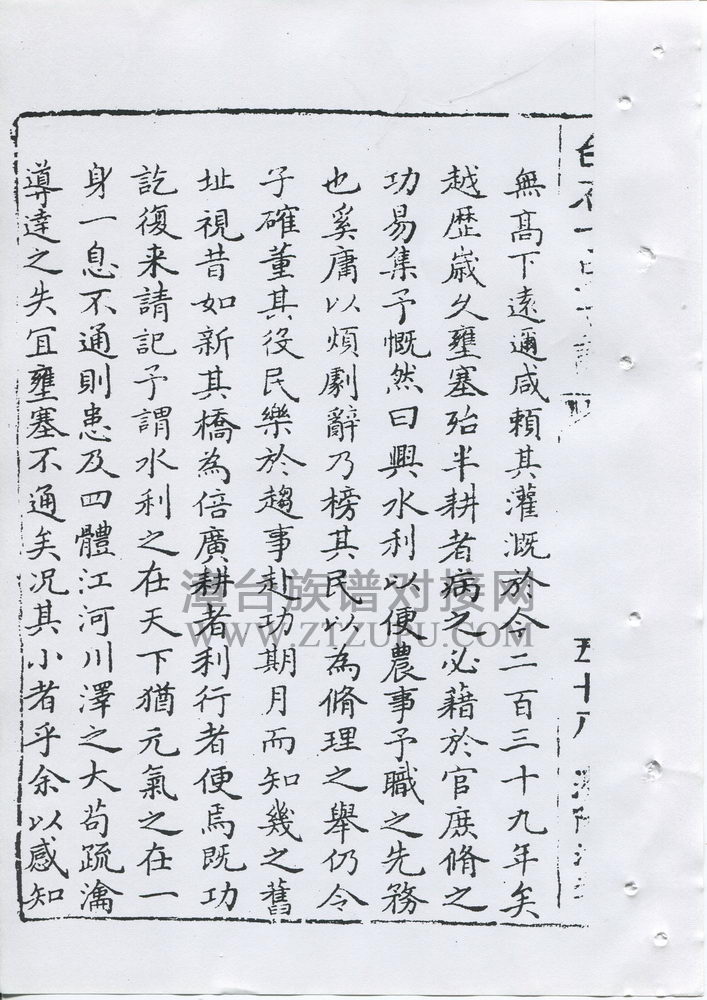 無髙下遠邇咸頼其灌溉於今二百三十九年矣
越歴嵗久壅塞殆半耕者病之必藉於官庶脩之
功易集予慨然曰興水利以便農事予職之先務
也奚庸以煩劇辭乃榜其民以為脩理之舉仍令
子確董其役民樂於趨事赴功期月而知幾之舊
址視昔如新其橋為倍廣耕者利行者便焉既功
訖復来請記予謂水利之在天下猶元氣之在一
身一息不通則患及四體江河川澤之大苟疏瀹
導達之失宜壅塞不通矣况其小者乎余以感知
五十
漳台族谱对接网
WWW.ZTZUPU.COM